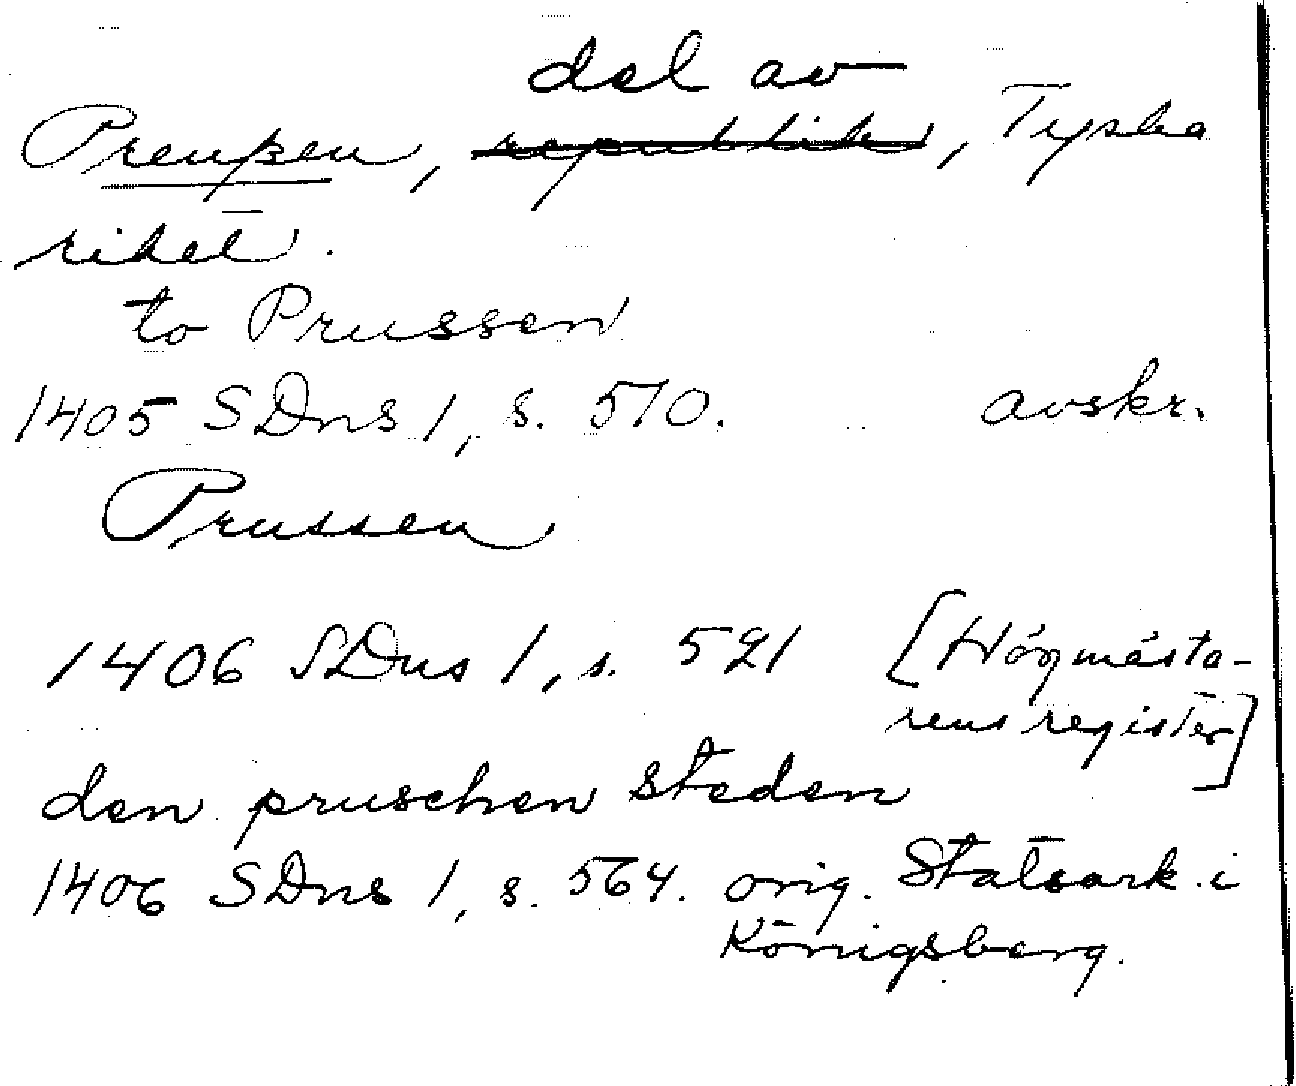 del av
Preußen, republik, Tyska
riket.
to Prussen
1405 SDns 1, s. 510. avskr.
Prussen
1406 SDns 1, s. 521 [Högmästa-
rens register]
den pruschen steden
1406 SDns 1, s. 564. orig. Statsark. i
Königsberg.